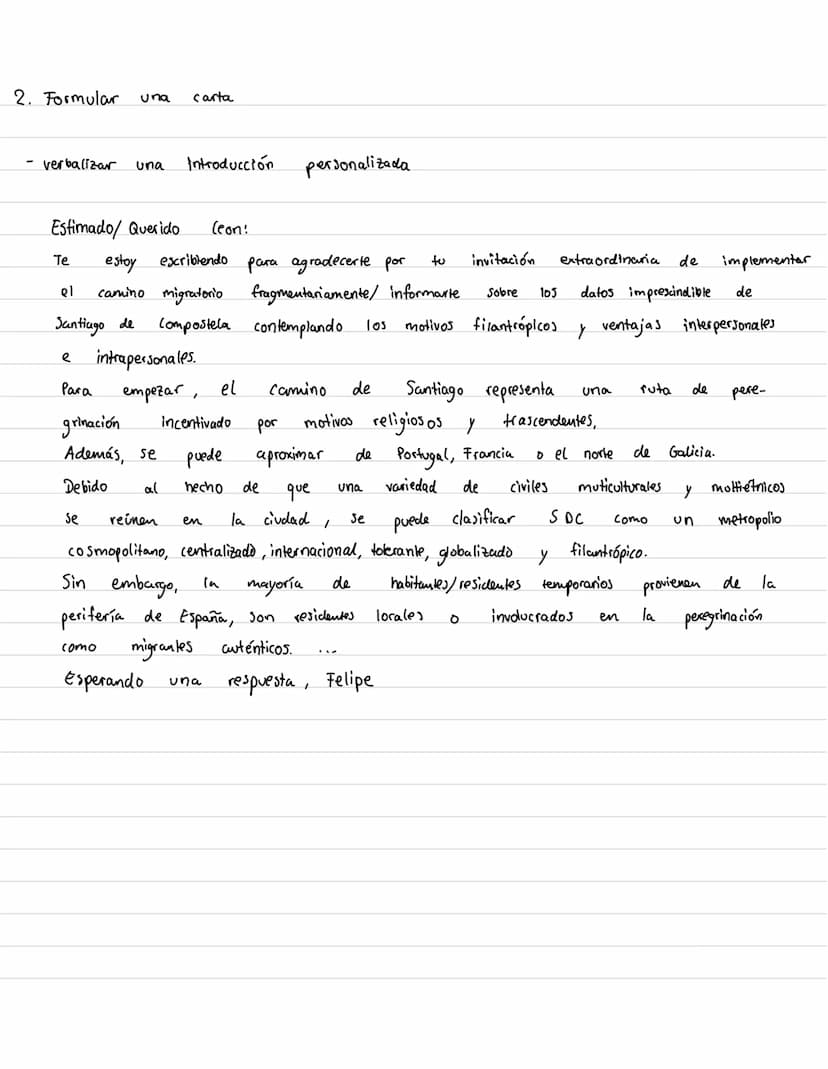 2. Formular una carta
- verbalizar una Introducción personalizada
Estimado/ Querido Leon:
Te estoy escribiendo para agradecerte por tu invitación extraordinaria de implementar
el camino migratorio fragmentariamente/ informarte sobre los datos imprescindible de
Santiago de Compostela contemplando los motivos filantrópicos y ventajas interpersonales
e intrapersonales.
Para empezar, el camino de Santiago representa una ruta de pere-
grinación incentivado por motivos religiosos y trascendentes,
Además, se puede aproximar de Portugal, Francia o el norte de Galicia.
Debido al hecho de que una variedad de civiles muticulturales y moltiétnicos
se reúnen en la ciudad, se puede clasificar SDC como un metropolio
cosmopolitano, centralizado, internacional, tolerante, globalizado y filantrópico.
Sin embargo, la mayoría de habitantes/residentes temporarios provienen de la
perifería de España, son residentes locales o involucrados en la peregrinación
como migrantes auténticos. ...
Esperando una respuesta, Felipe